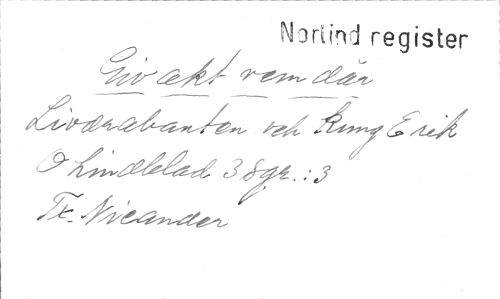 Norlind register
Giv akt vem där
Livdrabanten och Kung Erik
O Lindblad 3 sgr.:3
Tx. Nicander